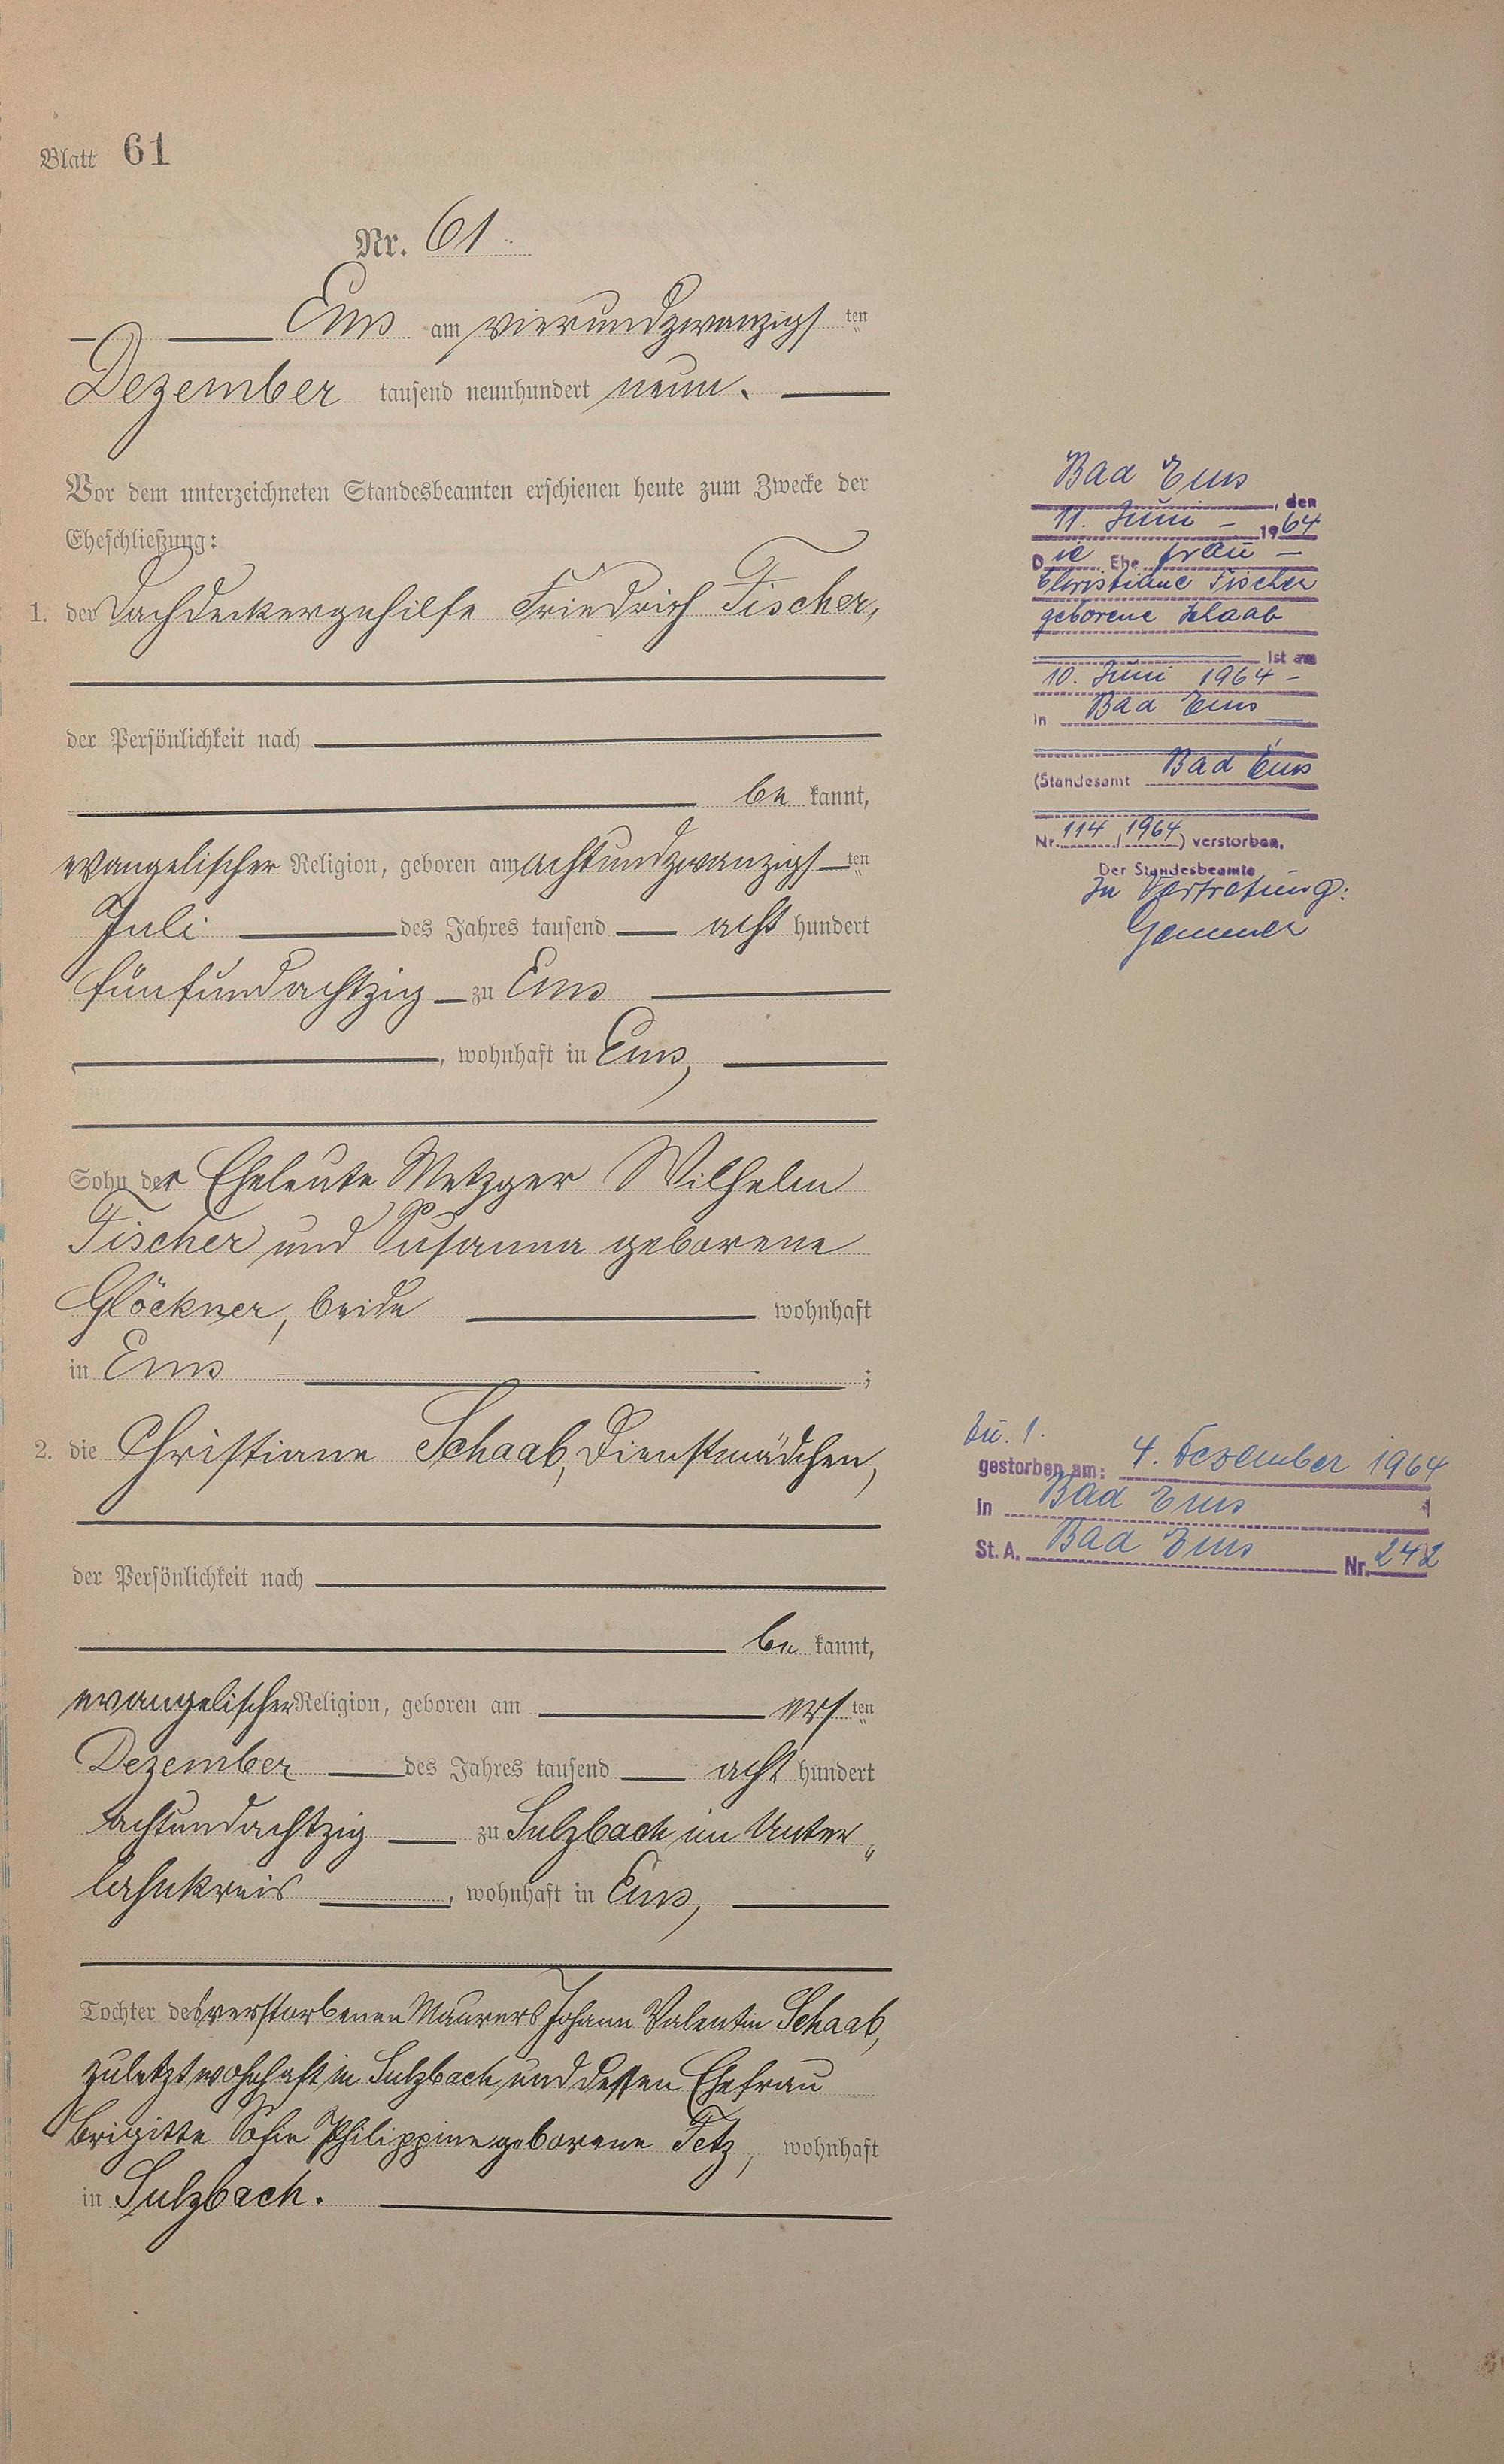 Blatt 61
Nr. 61
Ems am vierundzwanzigsten
Dezember tausend neunhundert neun.
Vor dem unterzeichneten Standesbeamten erschienen heute zum Zwecke der
Eheschließung:
1. der Dachdeckergehilfe Friedrich Fischer,
der Persönlichkeit nach
be kannt,
evangelischer Religion, geboren am achtundzwanzigsten
Juli des Jahres tausend acht hundert
fünfundachtzig zu Ems
, wohnhaft in Ems,
Sohn der Eheleute Metzger Wilhelm
Fischer und Susanna geborene
Glöckner, beide wohnhaft
in Ems ;
2. die Christiane Schaab, Dienstmädchen,
der Persönlichkeit nach
be kannt,
evangelischer Religion, geboren am ersten
Dezember des Jahres tausend acht hundert
achtundachtzig zu Sulzbach im Unter„
lahnkreis , wohnhaft in Ems,
Tochter des verstorbenen Maurers Johann Valentin Schaab,
zuletzt wohnhaft in Sulzbach und dessen Ehefrau
Brigitte Sofie Philippine geborene Fetz, wohnhaft
in Sulzbach.
Bad Ems , den
11. Juni - 1964
Die Ehefrau -
Christiane Fischer
geborene Schaab
ist am
10. Juni 1964 -
in Bad Ems
(Standesamt Bad Ems
Nr. 114 / 1964) verstorben.
Der Standesbeamte
In Vertretung:
Zu. 1.
gestorben am: 4. Dezember 1964
in Bad Ems
St. A. Bad Ems Nr. 242